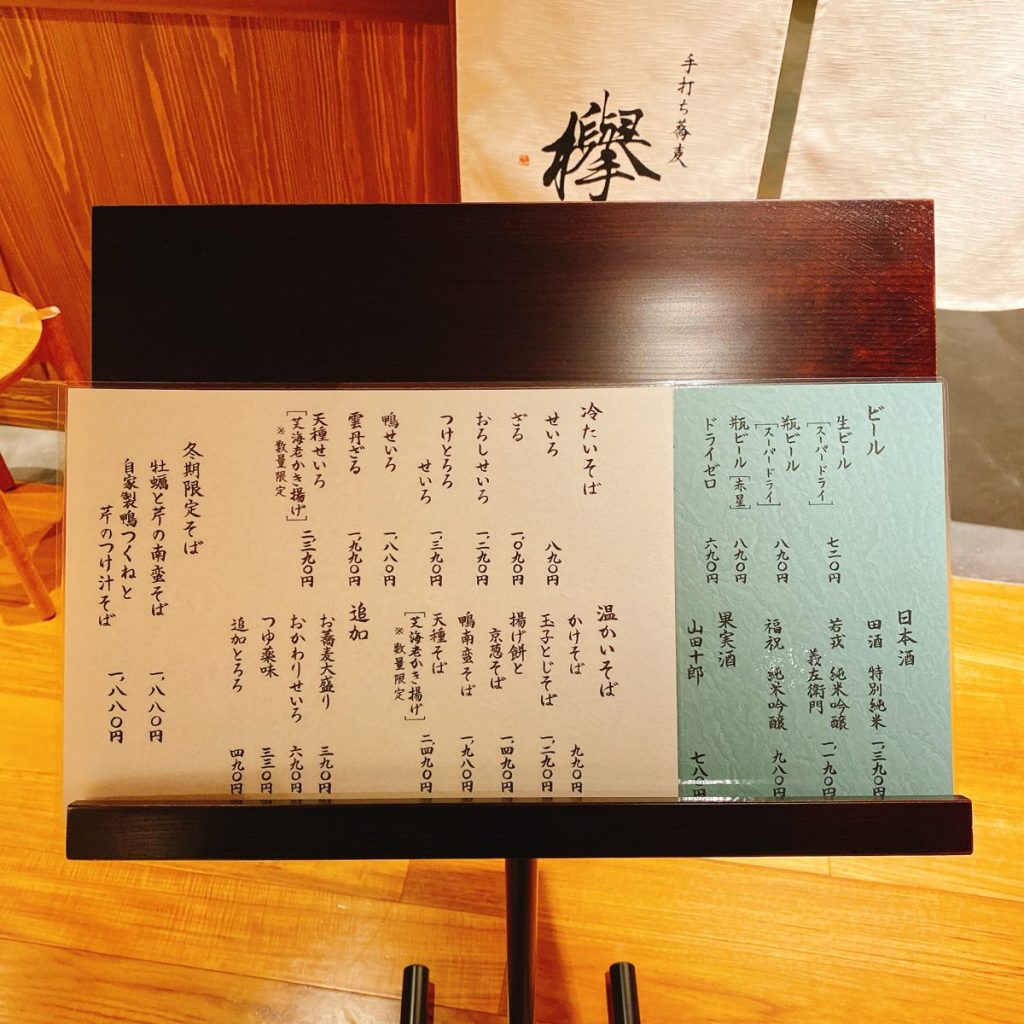 手打ち蕎麦
欅
ビール
生ビール 七二〇円
[スーパードライ]
瓶ビール 八九〇円
[スーパードライ]
瓶ビール[赤星] 八九〇円
ドライゼロ 六九〇円
日本酒
田酒 特別純米 一、三九〇円
若戎 純米吟醸 一、一九〇円
義左衛門
福祝 純米吟醸 九八〇円
果実酒
山田十郎 七八〇円
冷たいそば
せいろ 八九〇円
ざる 一、〇九〇円
おろしせいろ 一、二九〇円
つけとろろ
せいろ 一、三九〇円
鴨せいろ 一、八八〇円
雲丹ざる 一、九九〇円
天種せいろ 二、三九〇円
[芝海老かき揚げ]
※数量限定
温かいそば
かけそば 九九〇円
玉子とじそば 一、二九〇円
揚げ餅と
京葱そば 一、四九〇円
鴨南蛮そば 一、九八〇円
天種そば 二、四九〇円
[芝海老かき揚げ]
※数量限定
追加
お蕎麦大盛り 三九〇円
おかわりせいろ 六九〇円
つゆ薬味 三三〇円
追加とろろ 四九〇円
冬期限定そば
牡蠣と芹の南蛮そば 一、八八〇円
自家製鴨つくねと
芹のつけ汁そば 一、八八〇円